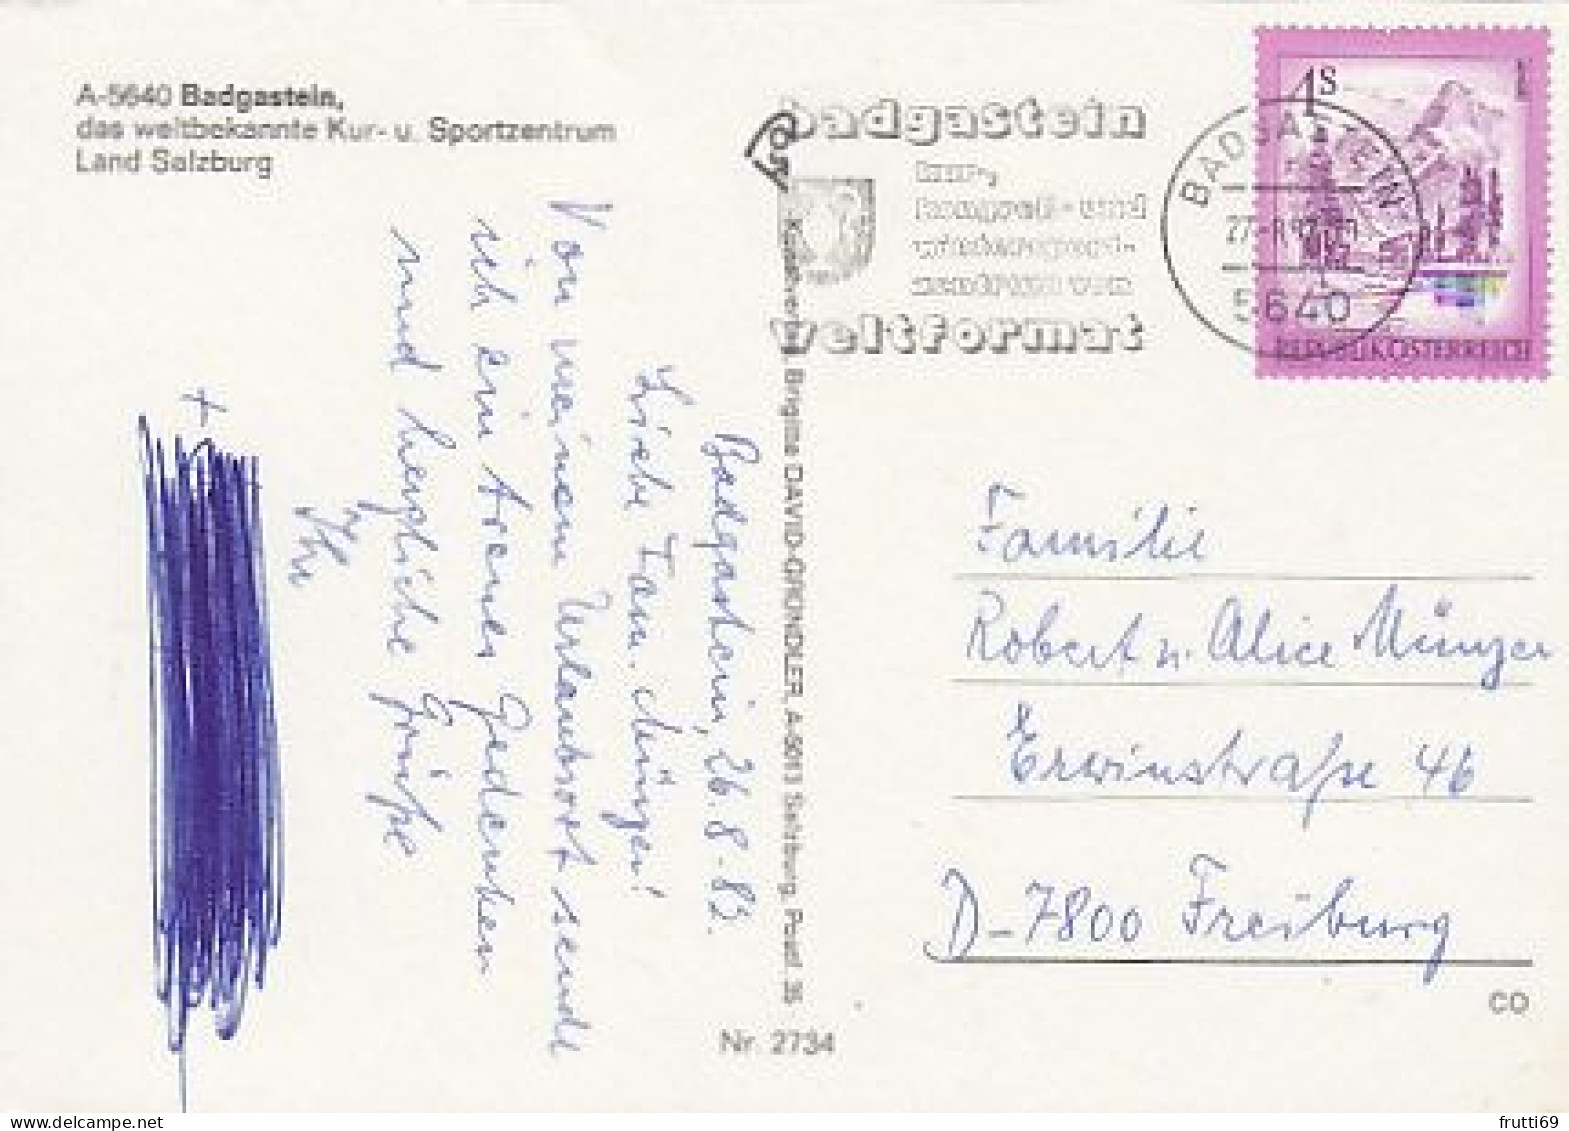 A-5640 Badgastein,
das weltbekannte Kur- u. Sportzentrum
Land Salzburg
badgastein
kur-,
kongreß- und
wintersport-
zentrum von
weltformat
BADGASTEIN
5640
4S
REPUBLIK ÖSTERREICH
Badgastein, 26.8.83.
Liebe Fam. Münzer!
Von meinem Urlaubsort sende
ich ein treues Gedenken
und herzliche Grüße
Ihr
Kunstverlag Brigitte DAVID-GRÜNDLER, A-5013 Salzburg, Postf. 35
Nr. 2734
Familie
Robert u. Alice Münzer
Erwinstraße 46
D-7800 Freiburg
CO
frutti69